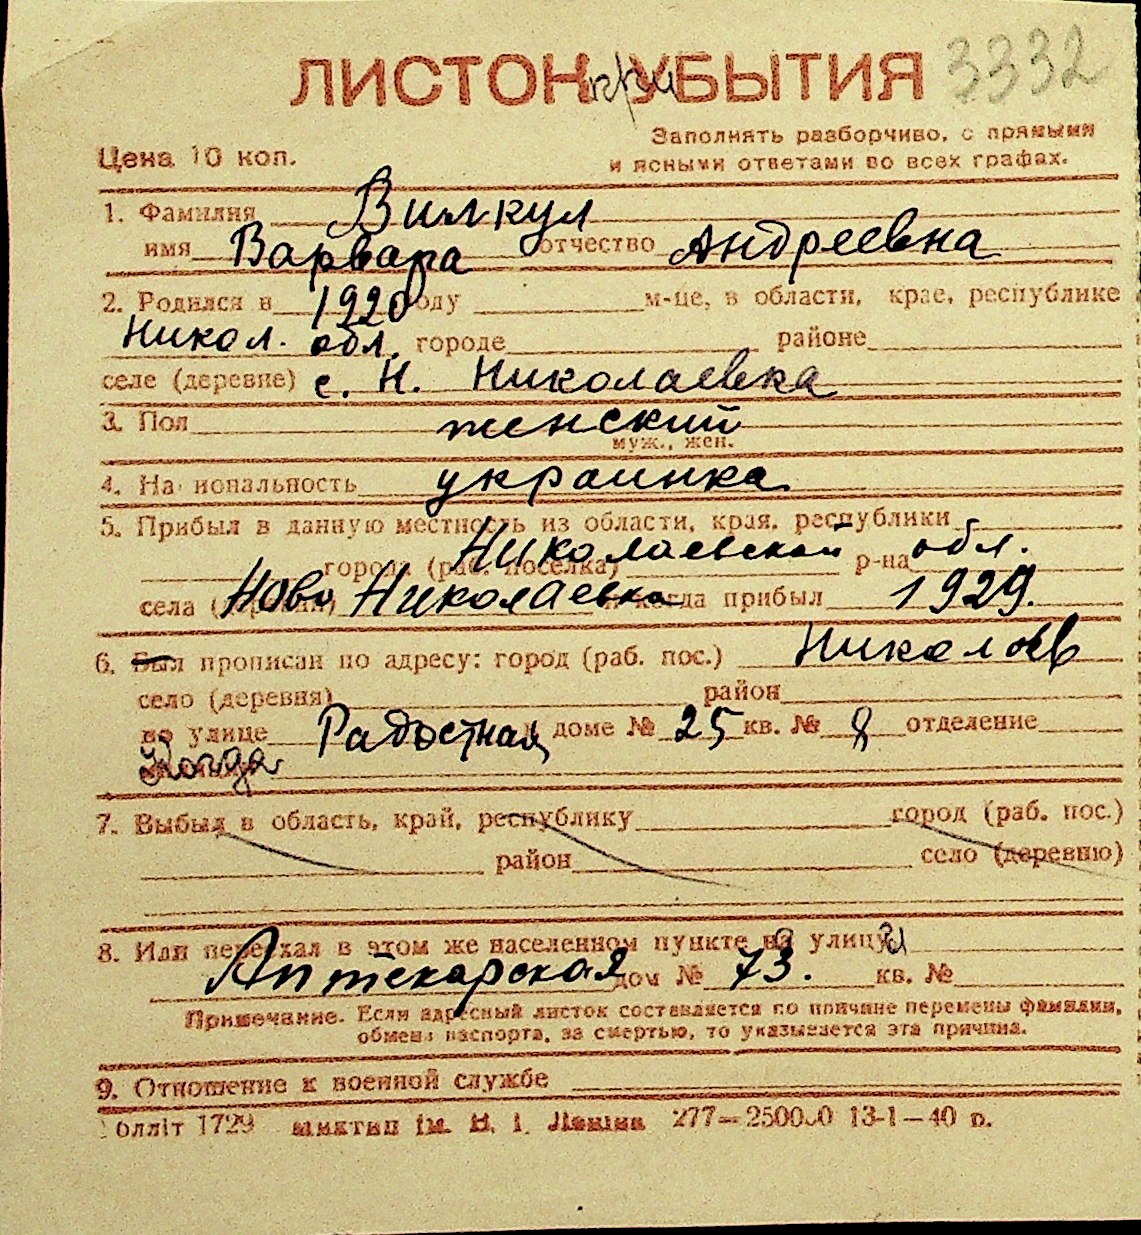 ЛИСТОК при УБЫТИЯ 3332
Заполнять разборчиво, с прямыми
Цена 10 коп. и ясными ответами во всех графах.
1. Фамилия Вилкул
имя Варвара отчество Андреевна
2. Родился в 1920 году м-це, в области, крае, республике
Никол. обл. городе районе
селе (деревне) с. Н. Николаевка
3. Пол женский
муж., жен.
4. Национальность украинка
5. Прибыл в данную местность из области, края, республики
Николаевской обл.
города (раб. поселка) р-на
села Ново Николаевка и когда прибыл 1929.
6. Был прописан по адресу: город (раб. пос.) Николаев
село (деревня) район
по улице Радостная доме № 25 кв. № 8 отделение
Когда
7. Выбыл в область, край, республику город (раб. пос.)
район село (деревню)
8. Или переехал в этом же населенном пункте на улицу
Аптекарская дом № 73. кв. №
Примечание. Если адресный листок составляется по причине перемены фамилии,
обмена паспорта, за смертью, то указывается эта причина.
9. Отношение к военной службе
олліт 1729 ім. В. І. Леніна 277—250000 13-1—40 р.